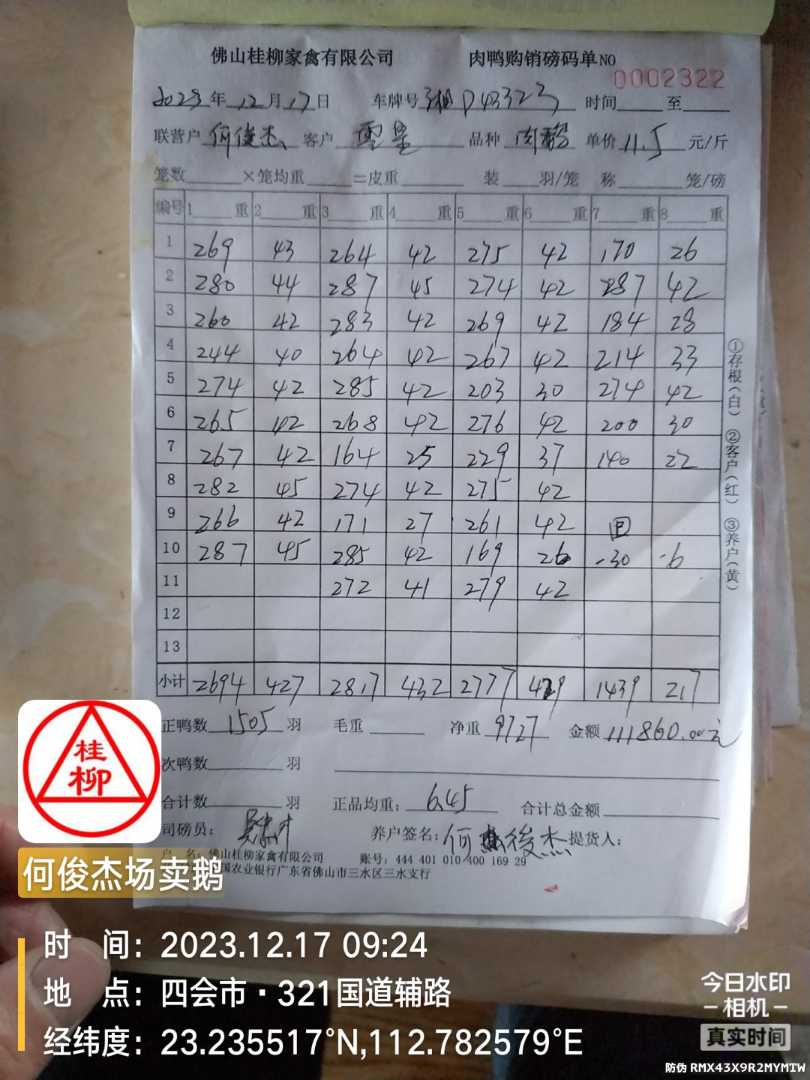 佛山桂柳家禽有限公司 肉鸭购销磅码单NO 0002322
2023年12月17日 车牌号 湘D43323 时间 至
联营户 何俊杰 客户 品种 肉鹅 单价 11.5 元/斤
笼数 ×笼均重 =皮重 装 羽/笼 称 笼/磅
编号 1 重 2 重 3 重 4 重 5 重 6 重 7 重 8 重
1 269 43 264 42 275 42 170 26
2 280 44 287 45 274 42 287 42
3 260 42 283 42 269 42 184 28
4 244 40 264 42 267 42 214 33
5 274 42 285 42 203 30 274 42
6 265 42 268 42 276 42 200 30
7 267 42 164 25 229 37 140 22
8 282 45 274 42 275 42
9 266 42 171 27 261 42 回
10 287 45 285 42 169 26 -30 -6
11 272 41 279 42
12
13
小计 2694 427 2817 432 2777 429 1439 217
正鸭数 1505 羽 毛重 净重 9727 金额 111860.00元
次鸭数 羽
合计数 羽 正品均重: 6.45 合计总金额
司磅员: 养户签名: 何俊杰 提货人:
户 名: 佛山桂柳家禽有限公司 账号: 444 401 010 400 169 29
国农业银行广东省佛山市三水区三水支行
①存根(白) ②客户(红) ③养户(黄)
桂
柳
何俊杰场卖鹅
时 间: 2023.12.17 09:24
地 点: 四会市·321国道辅路
经纬度: 23.235517°N,112.782579°E
今日水印
-相机-
真实时间
防伪 RMX43X9R2MYMIW